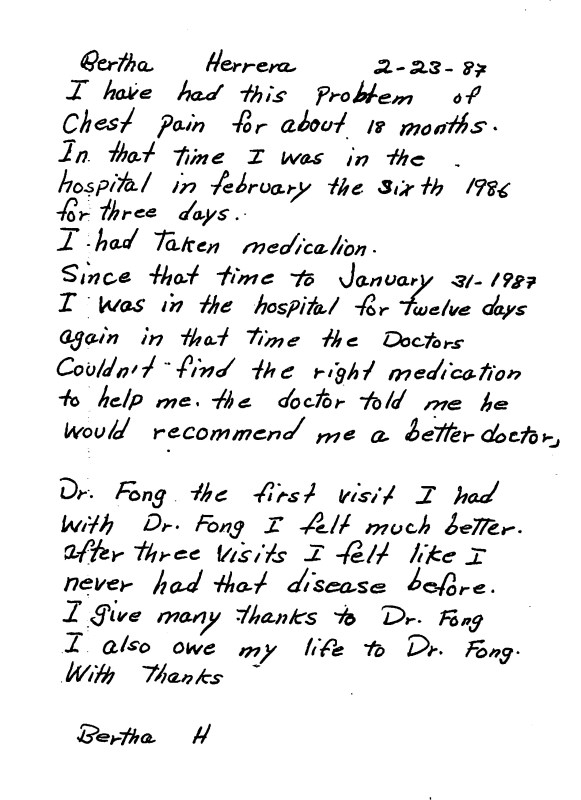 Bertha Herrera 2-23-87
I have had this problem of
Chest pain for about 18 months.
In that time I was in the
hospital in february the sixth 1986
for three days.
I had Taken medication.
Since that time to January 31-1987
I was in the hospital for twelve days
again in that time the Doctors
Couldn't find the right medication
to help me. the doctor told me he
would recommend me a better doctor,
Dr. Fong the first visit I had
With Dr. Fong I felt much better.
after three visits I felt like I
never had that disease before.
I give many thanks to Dr. Fong
I also owe my life to Dr. Fong.
With Thanks
Bertha H